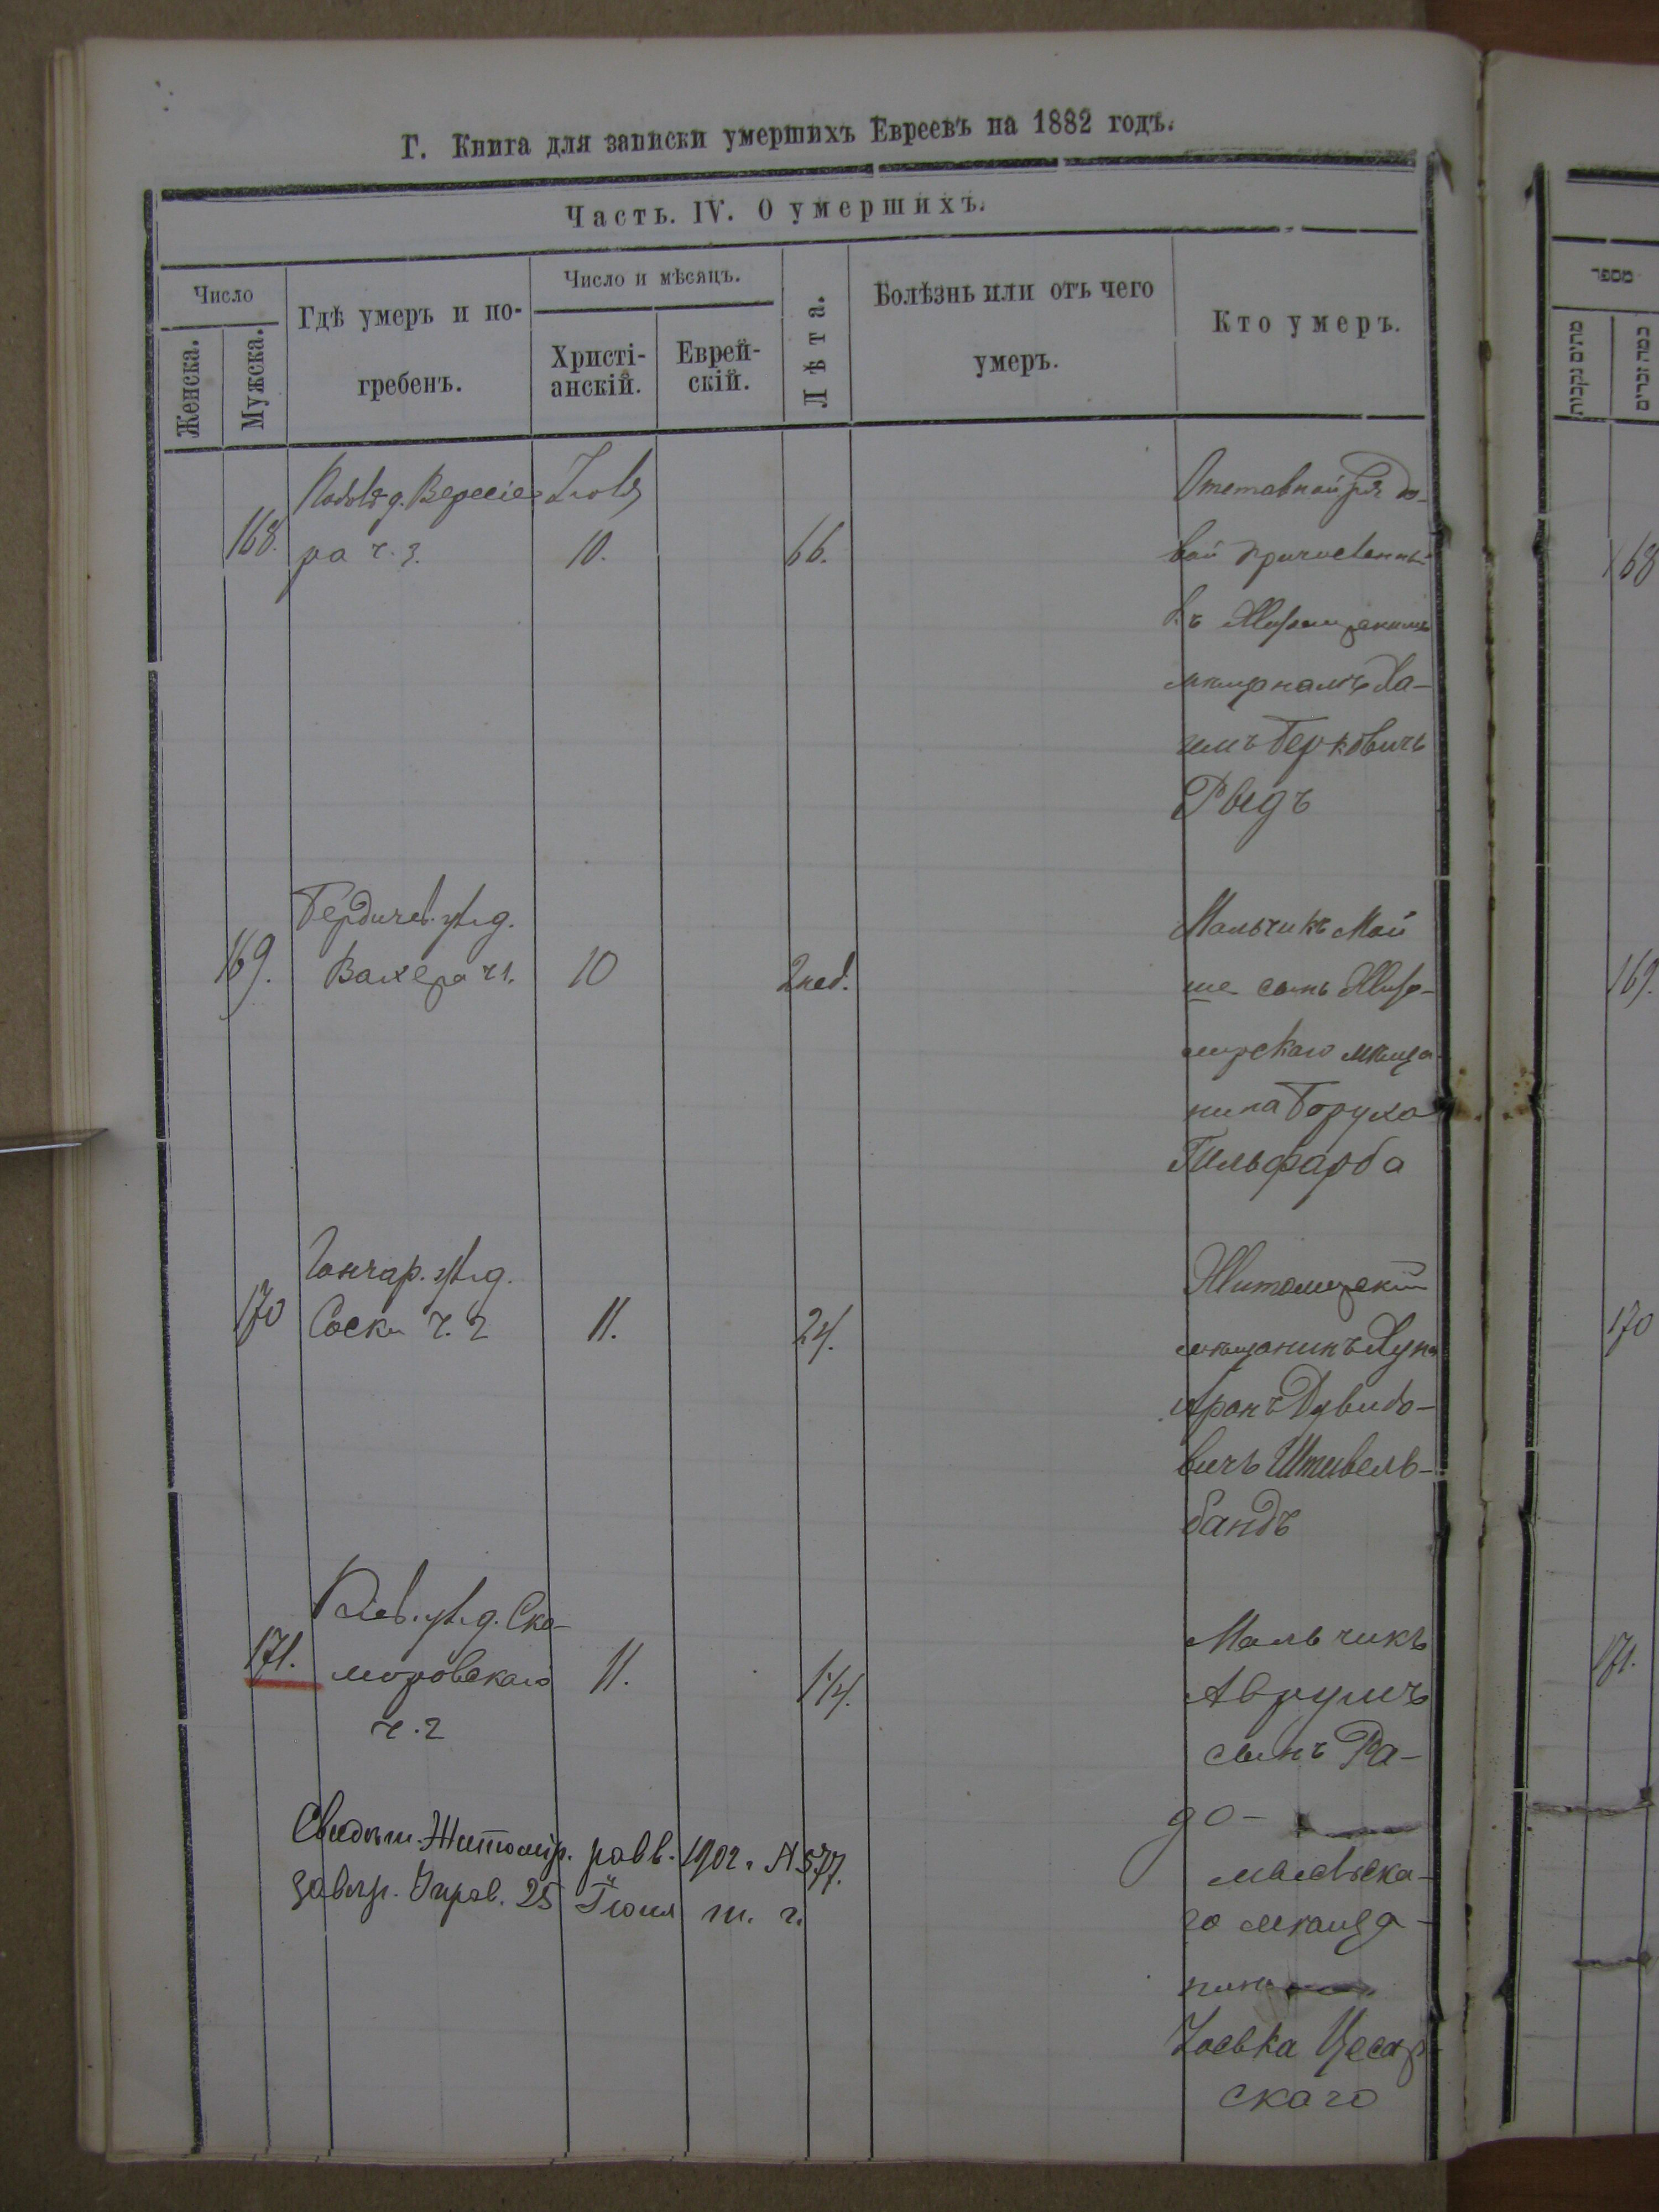 Г. Книга для записки умершихъ Евреевъ на 1882 годъ.
Часть. IV. О умершихъ.
Число
Женска.
Мужска.
Гдѣ умеръ и по-
гребенъ.
Число и мѣсяцъ.
Христі-
анскій.
Еврей-
скій.
Лѣта.
Болѣзнь или отъ чего
умеръ.
Кто умеръ.
168.
ра ч. 3.
Іюля
10.
66.
Отставной рядо-
вой причисленный
къ Житомирскимъ
мѣщанамъ Ха-
имъ Берковичъ
169.
Бердичев. ул. д.
Вахера ч 1.
10
2 нед.
Мальчикъ Мой
ше сынъ Жито-
мирскаго мѣща
нина Боруха
Гильфарба
170
Гончар. ул. д.
Соски ч. 2
11.
24.
Житомирскій
мѣщанинъ Хуна
Аронъ Дувидо-
вичъ Штивель-
бандъ
171.
Кіев. ул. д. Ско-
моровскаго
ч. 2
11.
1 1/4.
Мальчикъ
Аврумъ
сынъ Ра-
до-
мысльска-
го мѣща-
нина
Іоська Цесар-
скаго
Свидѣт. Житомір. равв. 1902 г. № 577.
завѣр. Управ. 25 Іюля т. г.
מספר
מתים נקבות
מתים זכרים
168
169.
170
171.